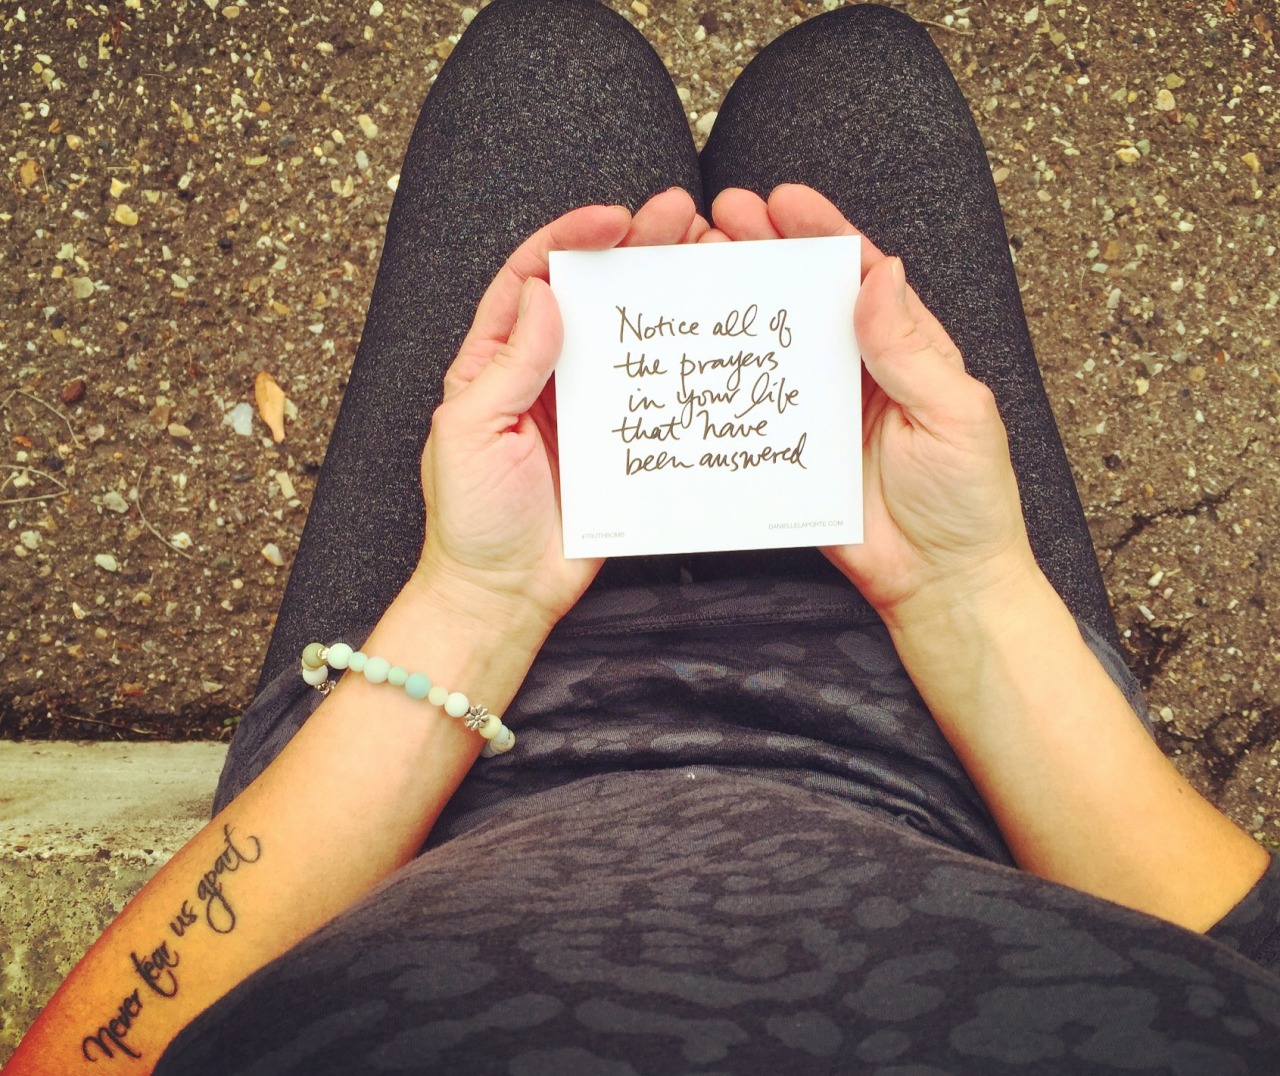 Notice all of
the prayers
in your life
that have
been answered
#TRUTHBOMB
DANIELLELAPORTE.COM
Never tear us apart